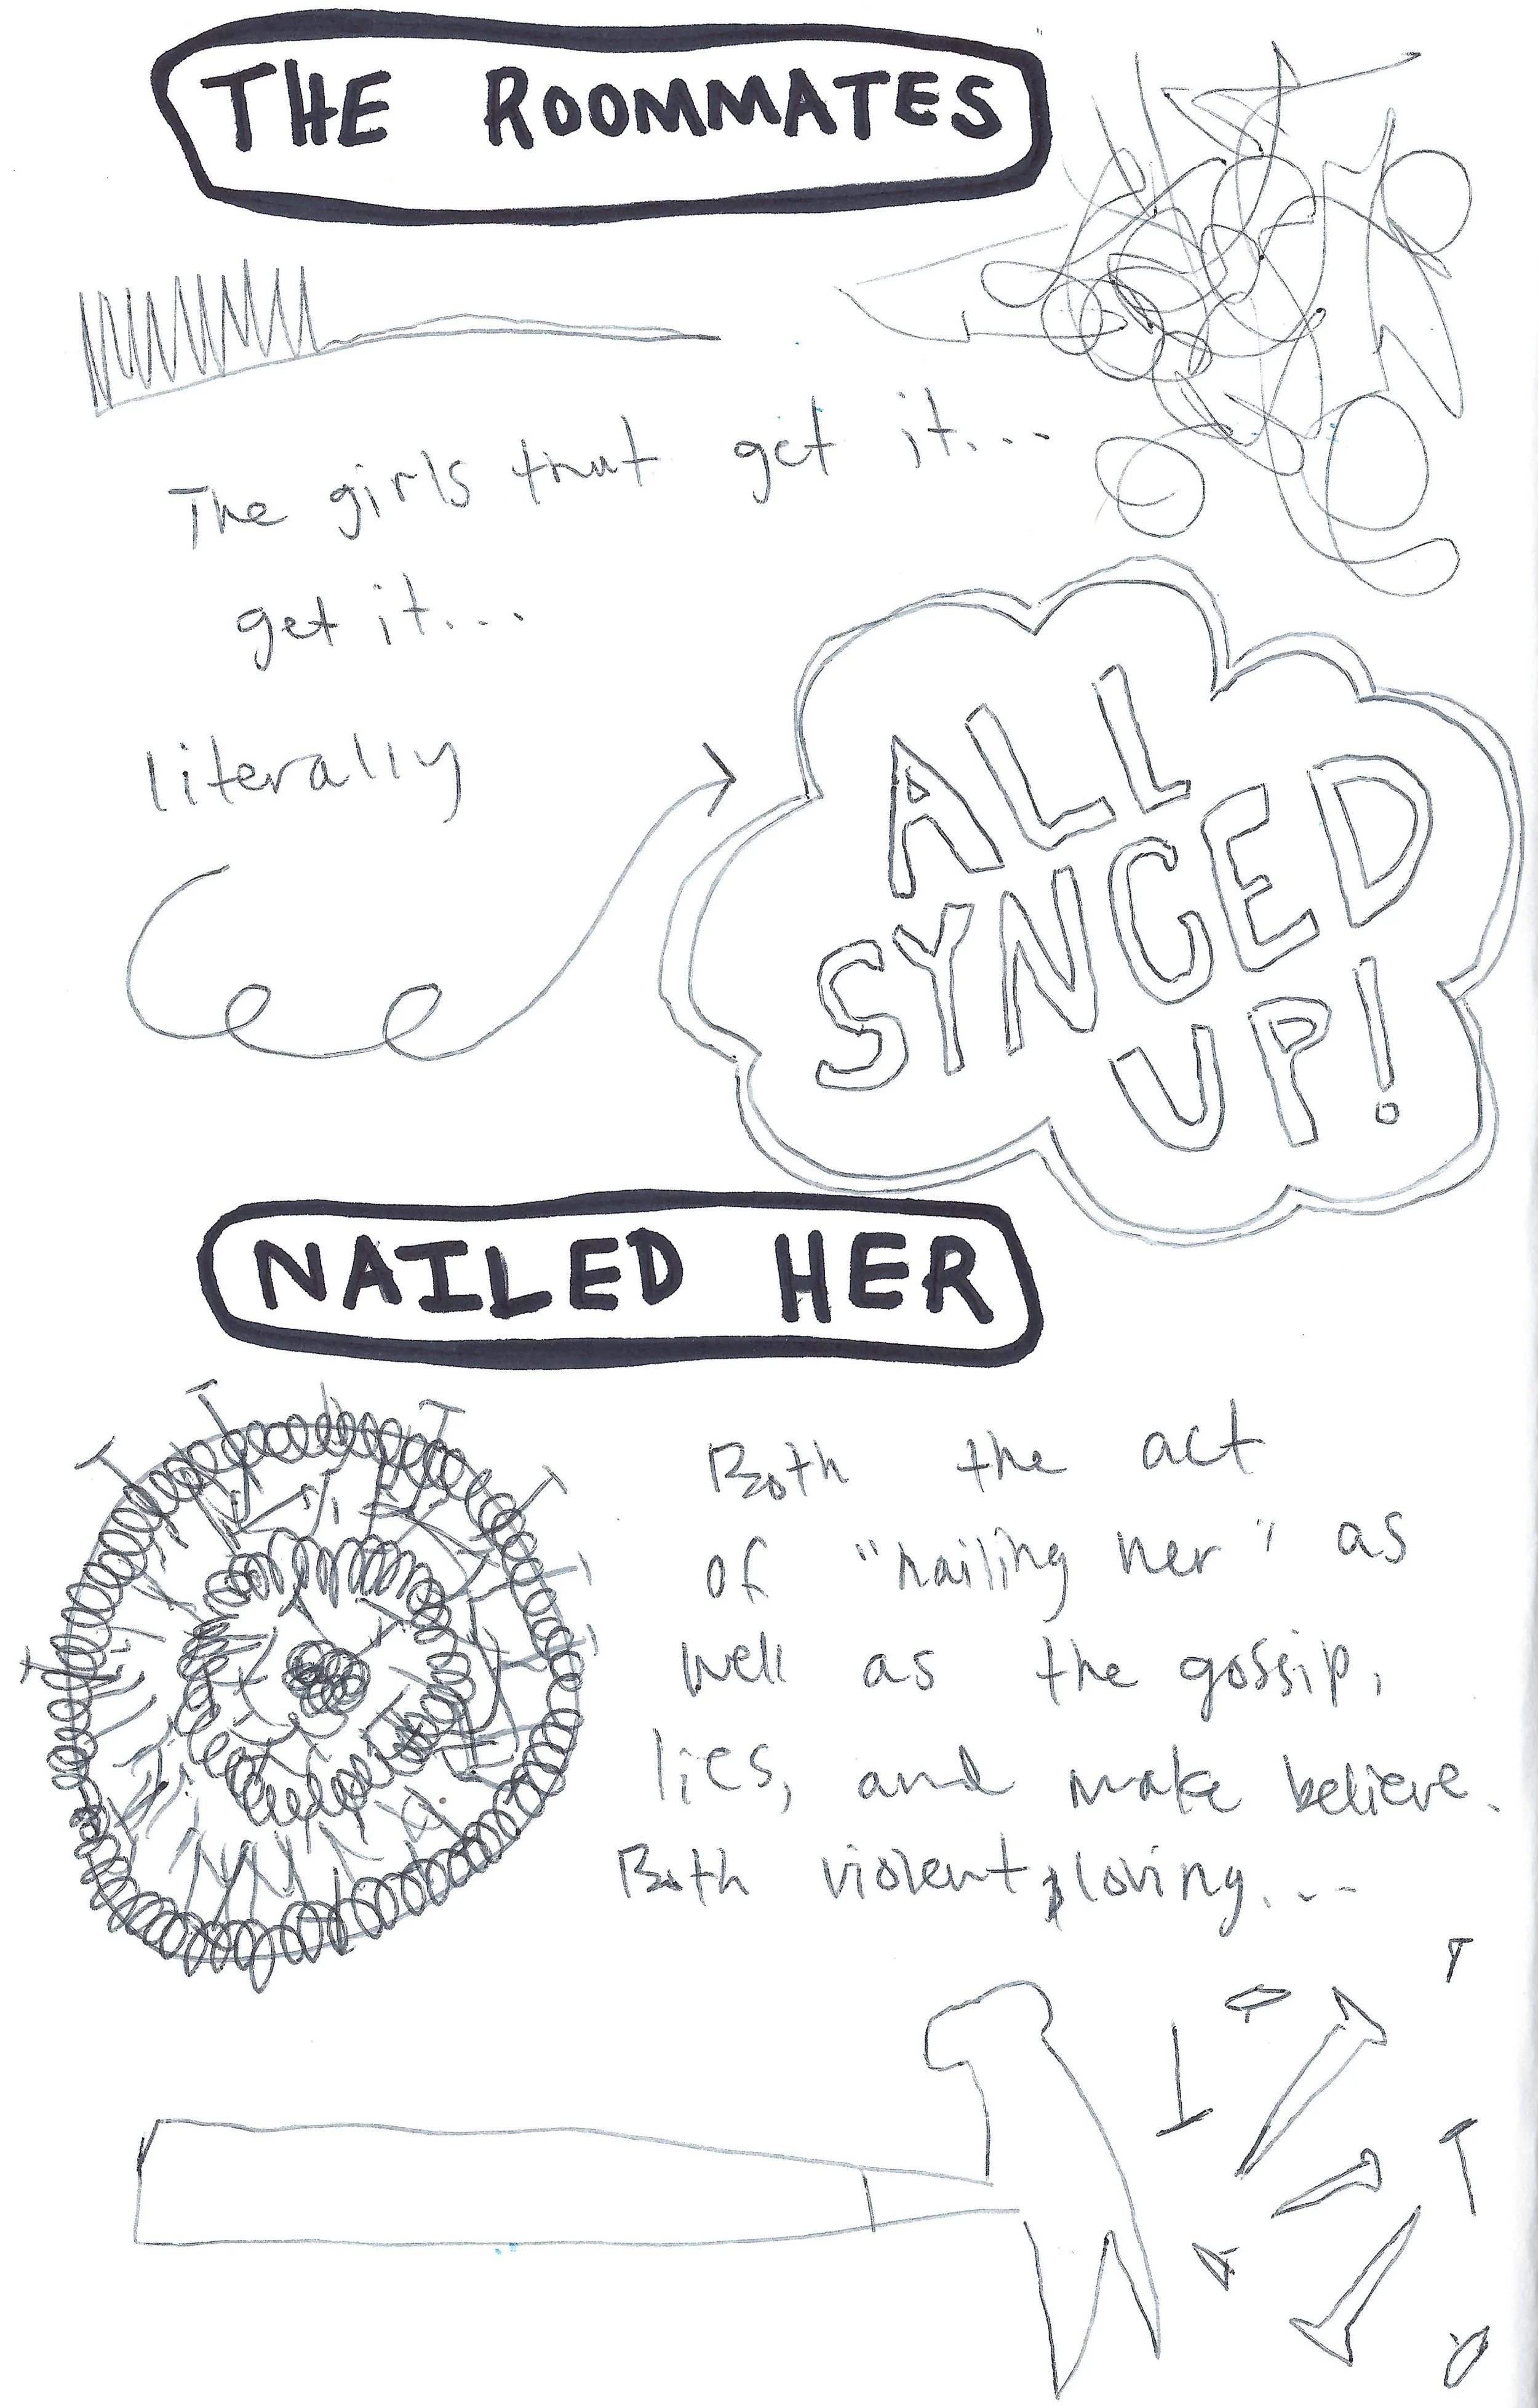 THE ROOMMATES
The girls that get it...
get it...
literally
ALL
SYNCED
UP!
NAILED HER
Both the act
of "nailing her" as
well as the gossip,
lies, and make believe.
Both violent & loving...